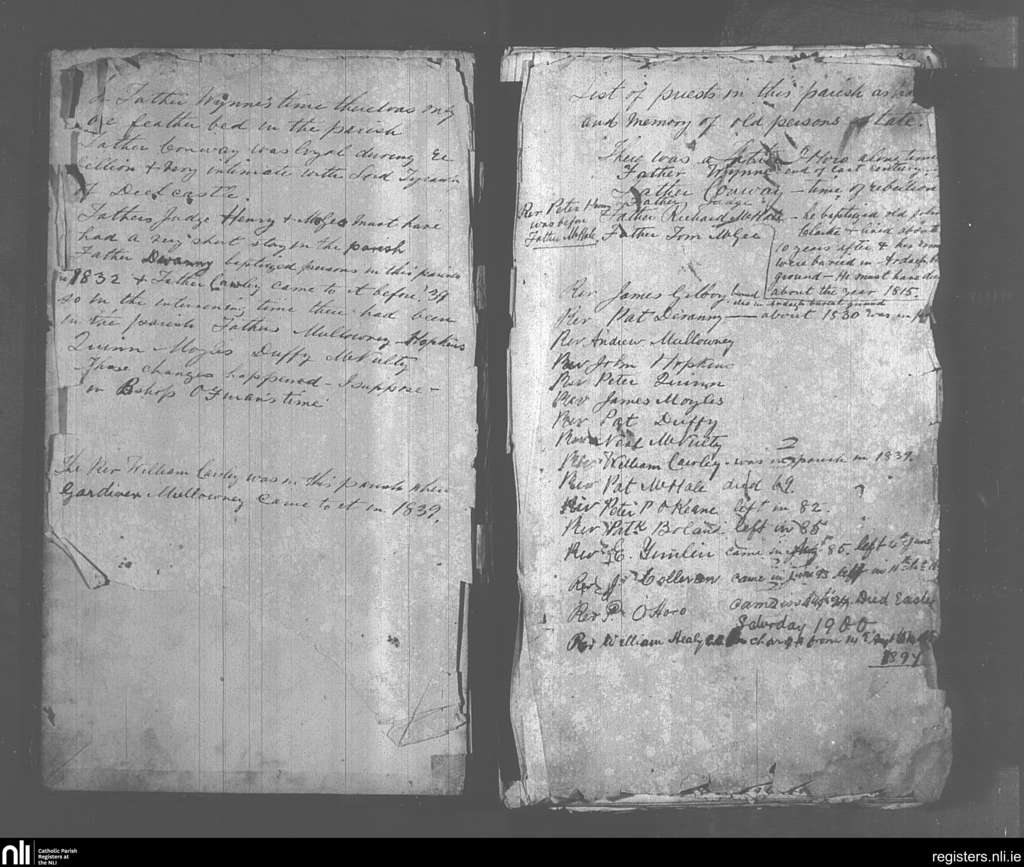 In Father Wynne's time there was only
one feather bed in the parish
Father Conway was loyal during Re
bellion & very intimate with Lord Tyrawly
of Deel castle
Fathers Judge Henry & McGee must have
had a very short stay in the parish
Father Devanny baptized persons in this parish
in 1832 & Father Cawley came to it before '39
so in the intervening time there had been
in the parish Fathers Mullowney Hopkins
Quinn Moyles Duffy McNulty
Those changes happened - I suppose -
in Bishop O'Finan's time
The Rev William Cawley was in this parish when
Gardiner Mullowney came to it in 1839.
List of priests in this parish
and memory of old persons state.
There was a Father O'Hora
Father Wynne end of last century
Father Conway - time of rebellion
Father Judge
Rev Peter Henry
was before
Father McHale
Father Richard McHale - he baptized old John
Father Tom McGee
Clarke & lived about
10 years after & his
were buried in Ardagh
ground - He must have
about the year 1815.
Rev James Gilboy buried
in Ardagh burial ground
Rev Pat Devanny - about 1830 was in
Rev Andrew Mullowney
Rev John Hopkins
Rev Peter Quinn
Rev James Moyles
Rev Pat Duffy
Rev Neal McNulty
Rev William Cawley. was in parish in 1839.
Rev Pat McHale died 69.
Rev Peter P O'Keane left in 82.
Rev Patk Boland left in 85
Rev E. Timlin came in Augt 85. left 6th June
Rev J. Colleran came in June 93 left in
Rev P. O'Hora came in Died Easter
Saturday 1900
Rev William Healy in charge from
1894
nli
Catholic Parish
Registers at
the NLI
registers.nli.ie